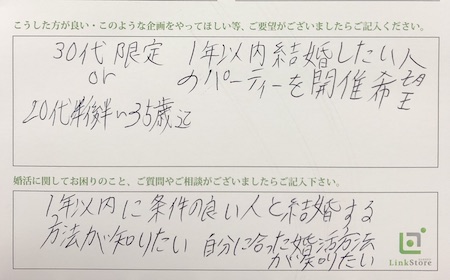 こうした方が良い・このような企画をやってほしい等、ご要望がございましたらご記入ください。
30代限定 1年以内結婚したい人
or のパーティーを開催希望
20代後半〜35歳迄
婚活に関してお困りのこと、ご質問やご相談がございましたらご記入下さい。
1年以内に条件の良い人と結婚する
方法が知りたい 自分に合った婚活方法
が知りたい
LinkStore